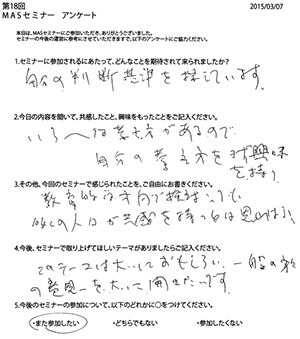 第18回
MASセミナー アンケート
2015/03/07
本日は、MASセミナーにご参加いただき、ありがとうございました。
セミナーの今後の運営に参考にさせていただきますので、以下のアンケートにご協力ください。
1.セミナーに参加されるにあたって、どんなことを期待されて来られましたか？
自分の判断基準を探しています。
2.今日の内容を聞いて、共感したこと、興味をもったことをご記入ください。
いろんな考え方があるので
自分の考え方をまず興味
を持つ
3.その他、今回のセミナーで感じられたことを、ご自由にお書きください。
教育的な方向
の人口が共感を持つとは思わない
4.今後、セミナーで取り上げてほしいテーマがありましたらご記入ください。
このテーマは大いにおもしろい 一般の
の意見を大いに聞きたいです
5.今後のセミナーの参加について、以下のどれかに○をつけてください。
・また参加したい ・どちらでもない ・参加したくない